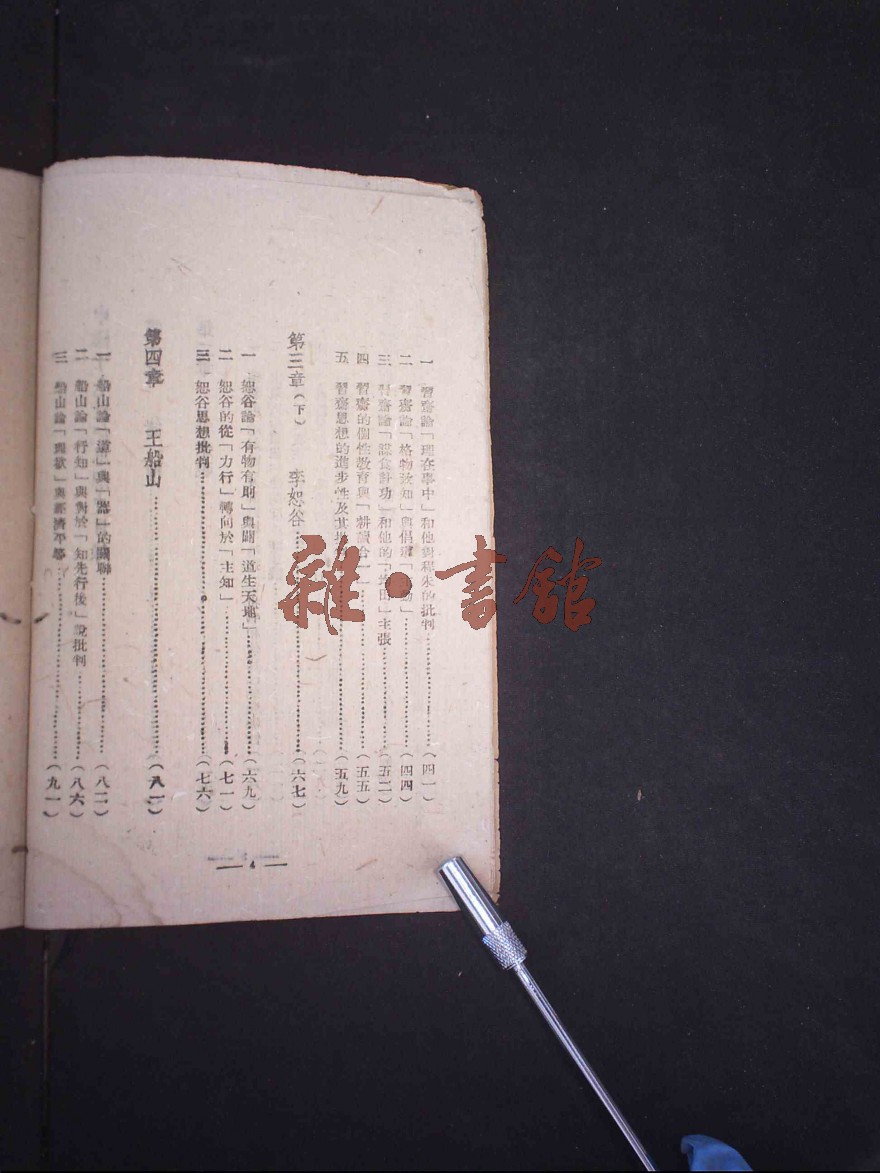 一 習齋論「理在事中」和他對程朱的批判……(四一)
二 習齋論「格物致知」與倡導「 動」……(四四)
三 習齋論「謀食計功」和他的「均田」主張……(五二)
四 習齋的個性教育與「耕讀合一」……(五五)
五 習齋思想的進步性及其……(五九)
第三章(下) 李恕谷……(六七)
一 恕谷論「有物有則」與闢「道生天地」……(六九)
二 恕谷的從「力行」轉向於「主知」……(七一)
三 恕谷思想批判……(七六)
第四章 王船山……(八一)
一 船山論「道」與「器」的關聯……(八二)
二 船山論「行知」與對於「知先行後」說批判……(八六)
三 船山論「理欲」與經濟平等……(九一)
— 4 —
雜•書館